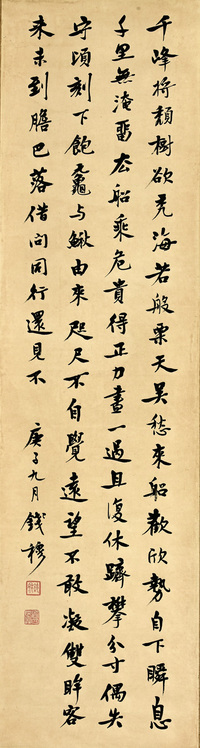 千峰將頹樹欲禿海若股栗天吳愁來船歡欣勢自下瞬息
千里無淹畱去船乘危貴得正力盡一過且復休躋攀分寸偶失
守頃刻下飽黿與鰍由來咫尺不自覺遠望不敢凝雙眸客
來未到膽已落借問同行還見不
庚子九月 錢穆